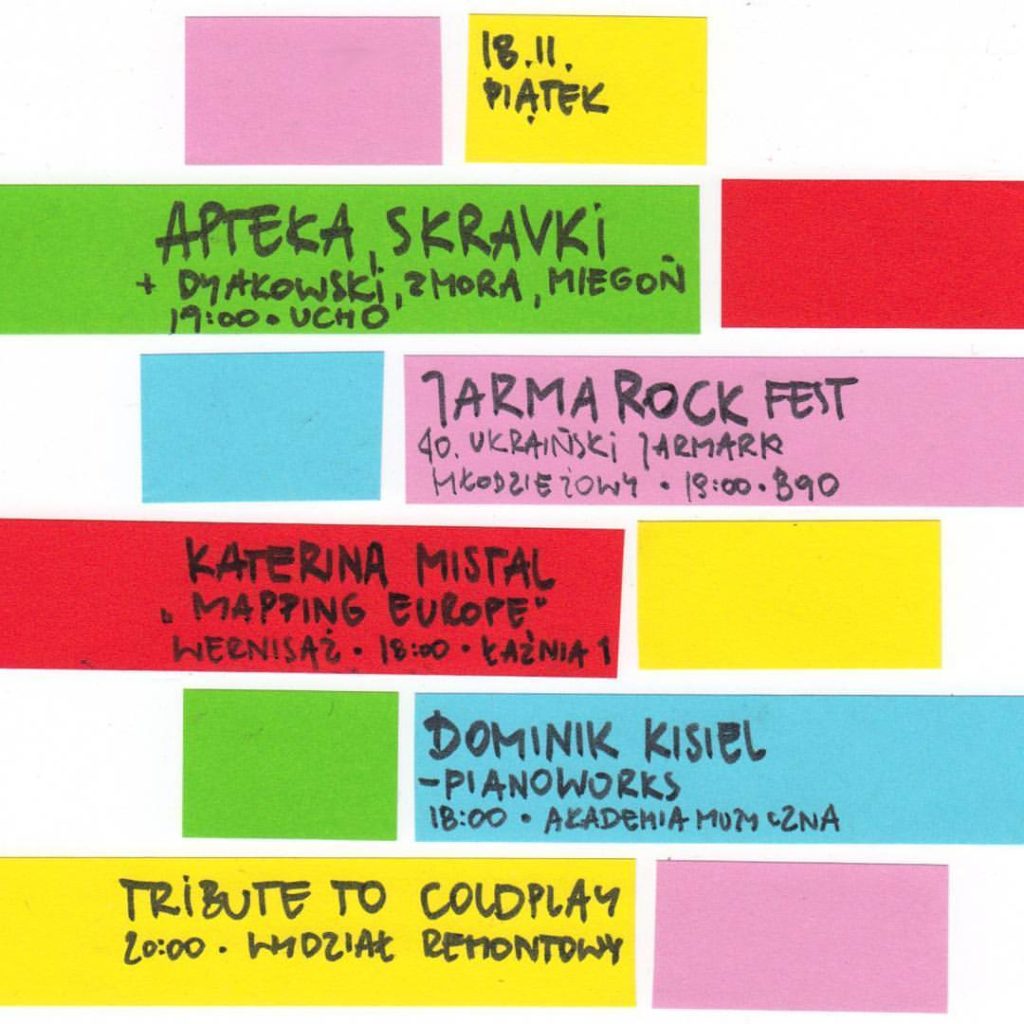 18.11.
PIĄTEK
APTEKA, SKRAVKI
+ DYAKOWSKI, ZMORA, MIEGOŃ
19:00 • UCHO
JARMA ROCK FEST
40. UKRAIŃSKI JARMARK
MŁODZIEŻOWY • 19:00 • B90
KATERINA MISTAL
„MAPPING EUROPE"
WERNISAŻ • 18:00 • ŁAŹNIA 1
DOMINIK KISIEL
-PIANOWORKS
18:00 • AKADEMIA MUZYCZNA
TRIBUTE TO COLDPLAY
20:00 • WYDZIAŁ REMONTOWY